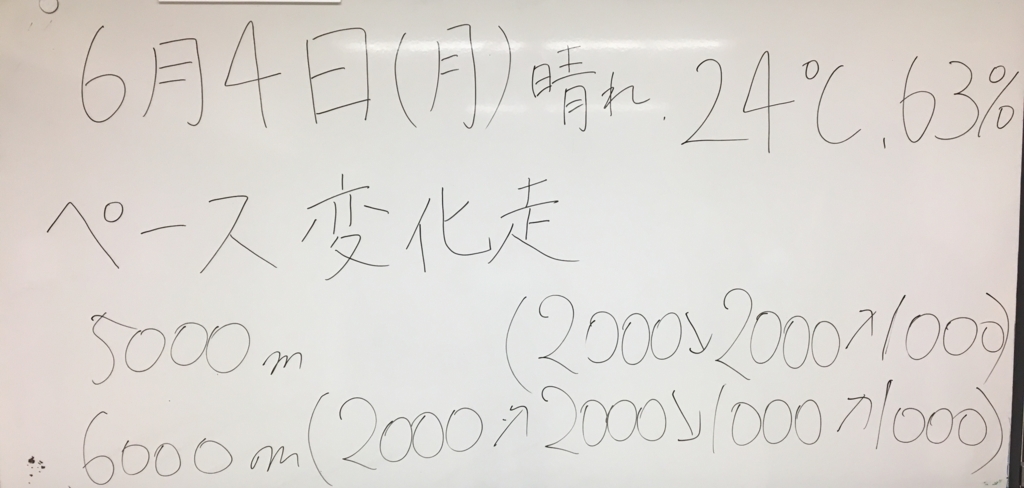 6月4日(月)晴れ.24℃、63%
ペース変化走
5000m (2000↘2000↗1000)
6000m(2000↗2000↘1000↗1000)